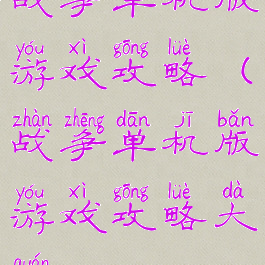 战争单机版
yóu xì gōng lüè
游戏攻略（
zhàn zhēng dān jī bǎn
战争单机版
yóu xì gōng lüè dà
游戏攻略大
quán